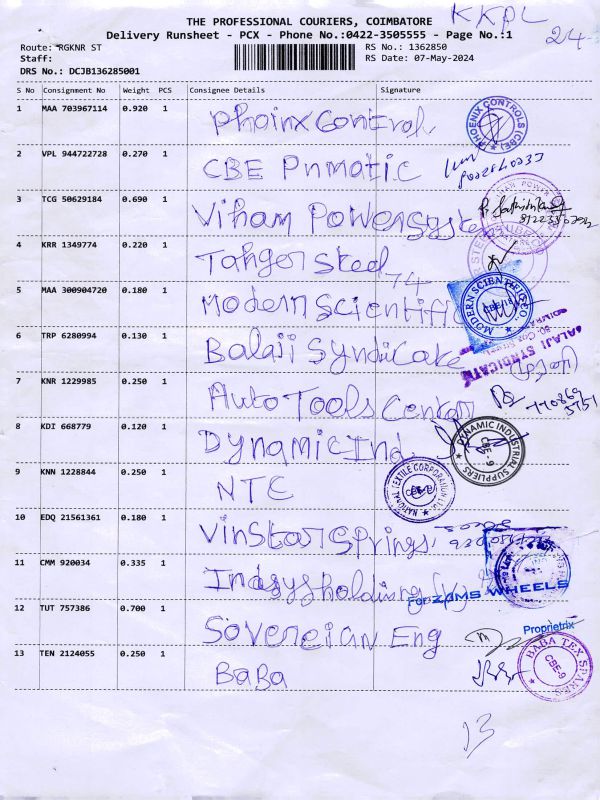 THE PROFESSIONAL COURIERS, COIMBATORE
KKPL
Delivery Runsheet - PCX - Phone No.:0422-3505555 - Page No.:1
24-
Route: RGKNR ST
RS No.: 1362850
Staff:
RS Date: 07-May-2024
DRS No.: DCJB136285001
S No Consignment No Weight PCS Consignee Details Signature
1 MAA 703967114 0.920 1 Phoinx Control.
PHOENIX CONTROLS (CBE)
2 VPL 944722728 0.270 1 CBE Pnmatic
3 TCG 50629184 0.690 1 Viham Powersystem
4 KRR 1349774 0.220 1 Tanger Steel
74
5 MAA 300904720 0.180 1 Modern Scientific
MODERN SCIENTIFIC CO.,
6 TRP 6280994 0.130 1 Balaji Syndicate
BALAJI SYNDICATE
7 KNR 1229985 0.250 1 Auto Tools Center
8 KDI 668779 0.120 1 Dynamic Ind.
DYNAMIC INDUSTRIAL SUPPLIERS
CBE-9
9 KNN 1228844 0.250 1 NTC
NATIONAL TEXTILE CORPORATION LTD.
10 EDQ 21561361 0.180 1 Vinstar Springs.
11 CMM 920034 0.335 1 Indsys holding (P)
For ZAMS WHEELS
12 TUT 757386 0.700 1 Sovereian Eng
Proprietrix
13 TEN 2124055 0.250 1 BaBa
BABA TEX SPARES
CBE-9
13